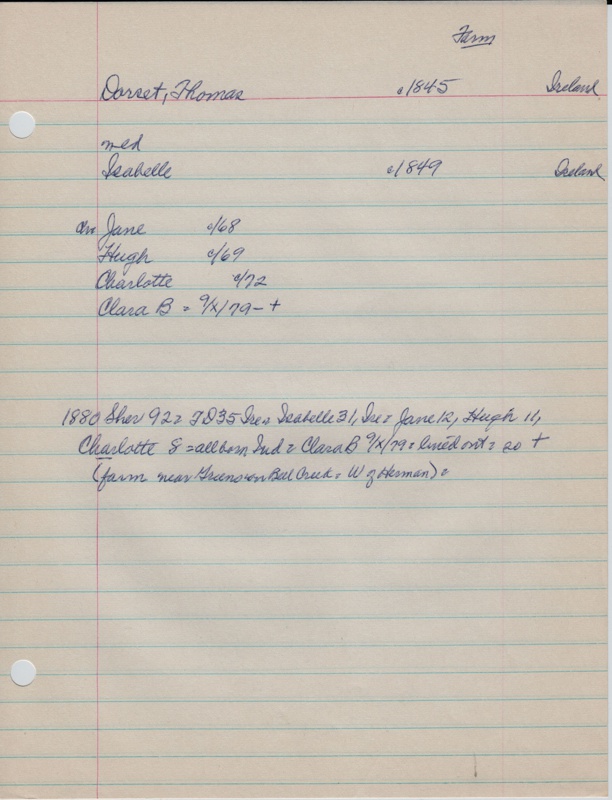 Farm
Dorset, Thomas c1845 Ireland
med
Isabelle c1849 Ireland
chn Jane c/68
Hugh c/69
Charlotte c/72
Clara B = 9/X/79 - +
1880 Sher 92 = TD 35 Ire = Isabelle 31, Ire = Jane 12, Hugh 11,
Charlotte 8 = all born Ind = Clara B 9/X/79 = lined out = so +
(farm near on Creek = W of Herman) =